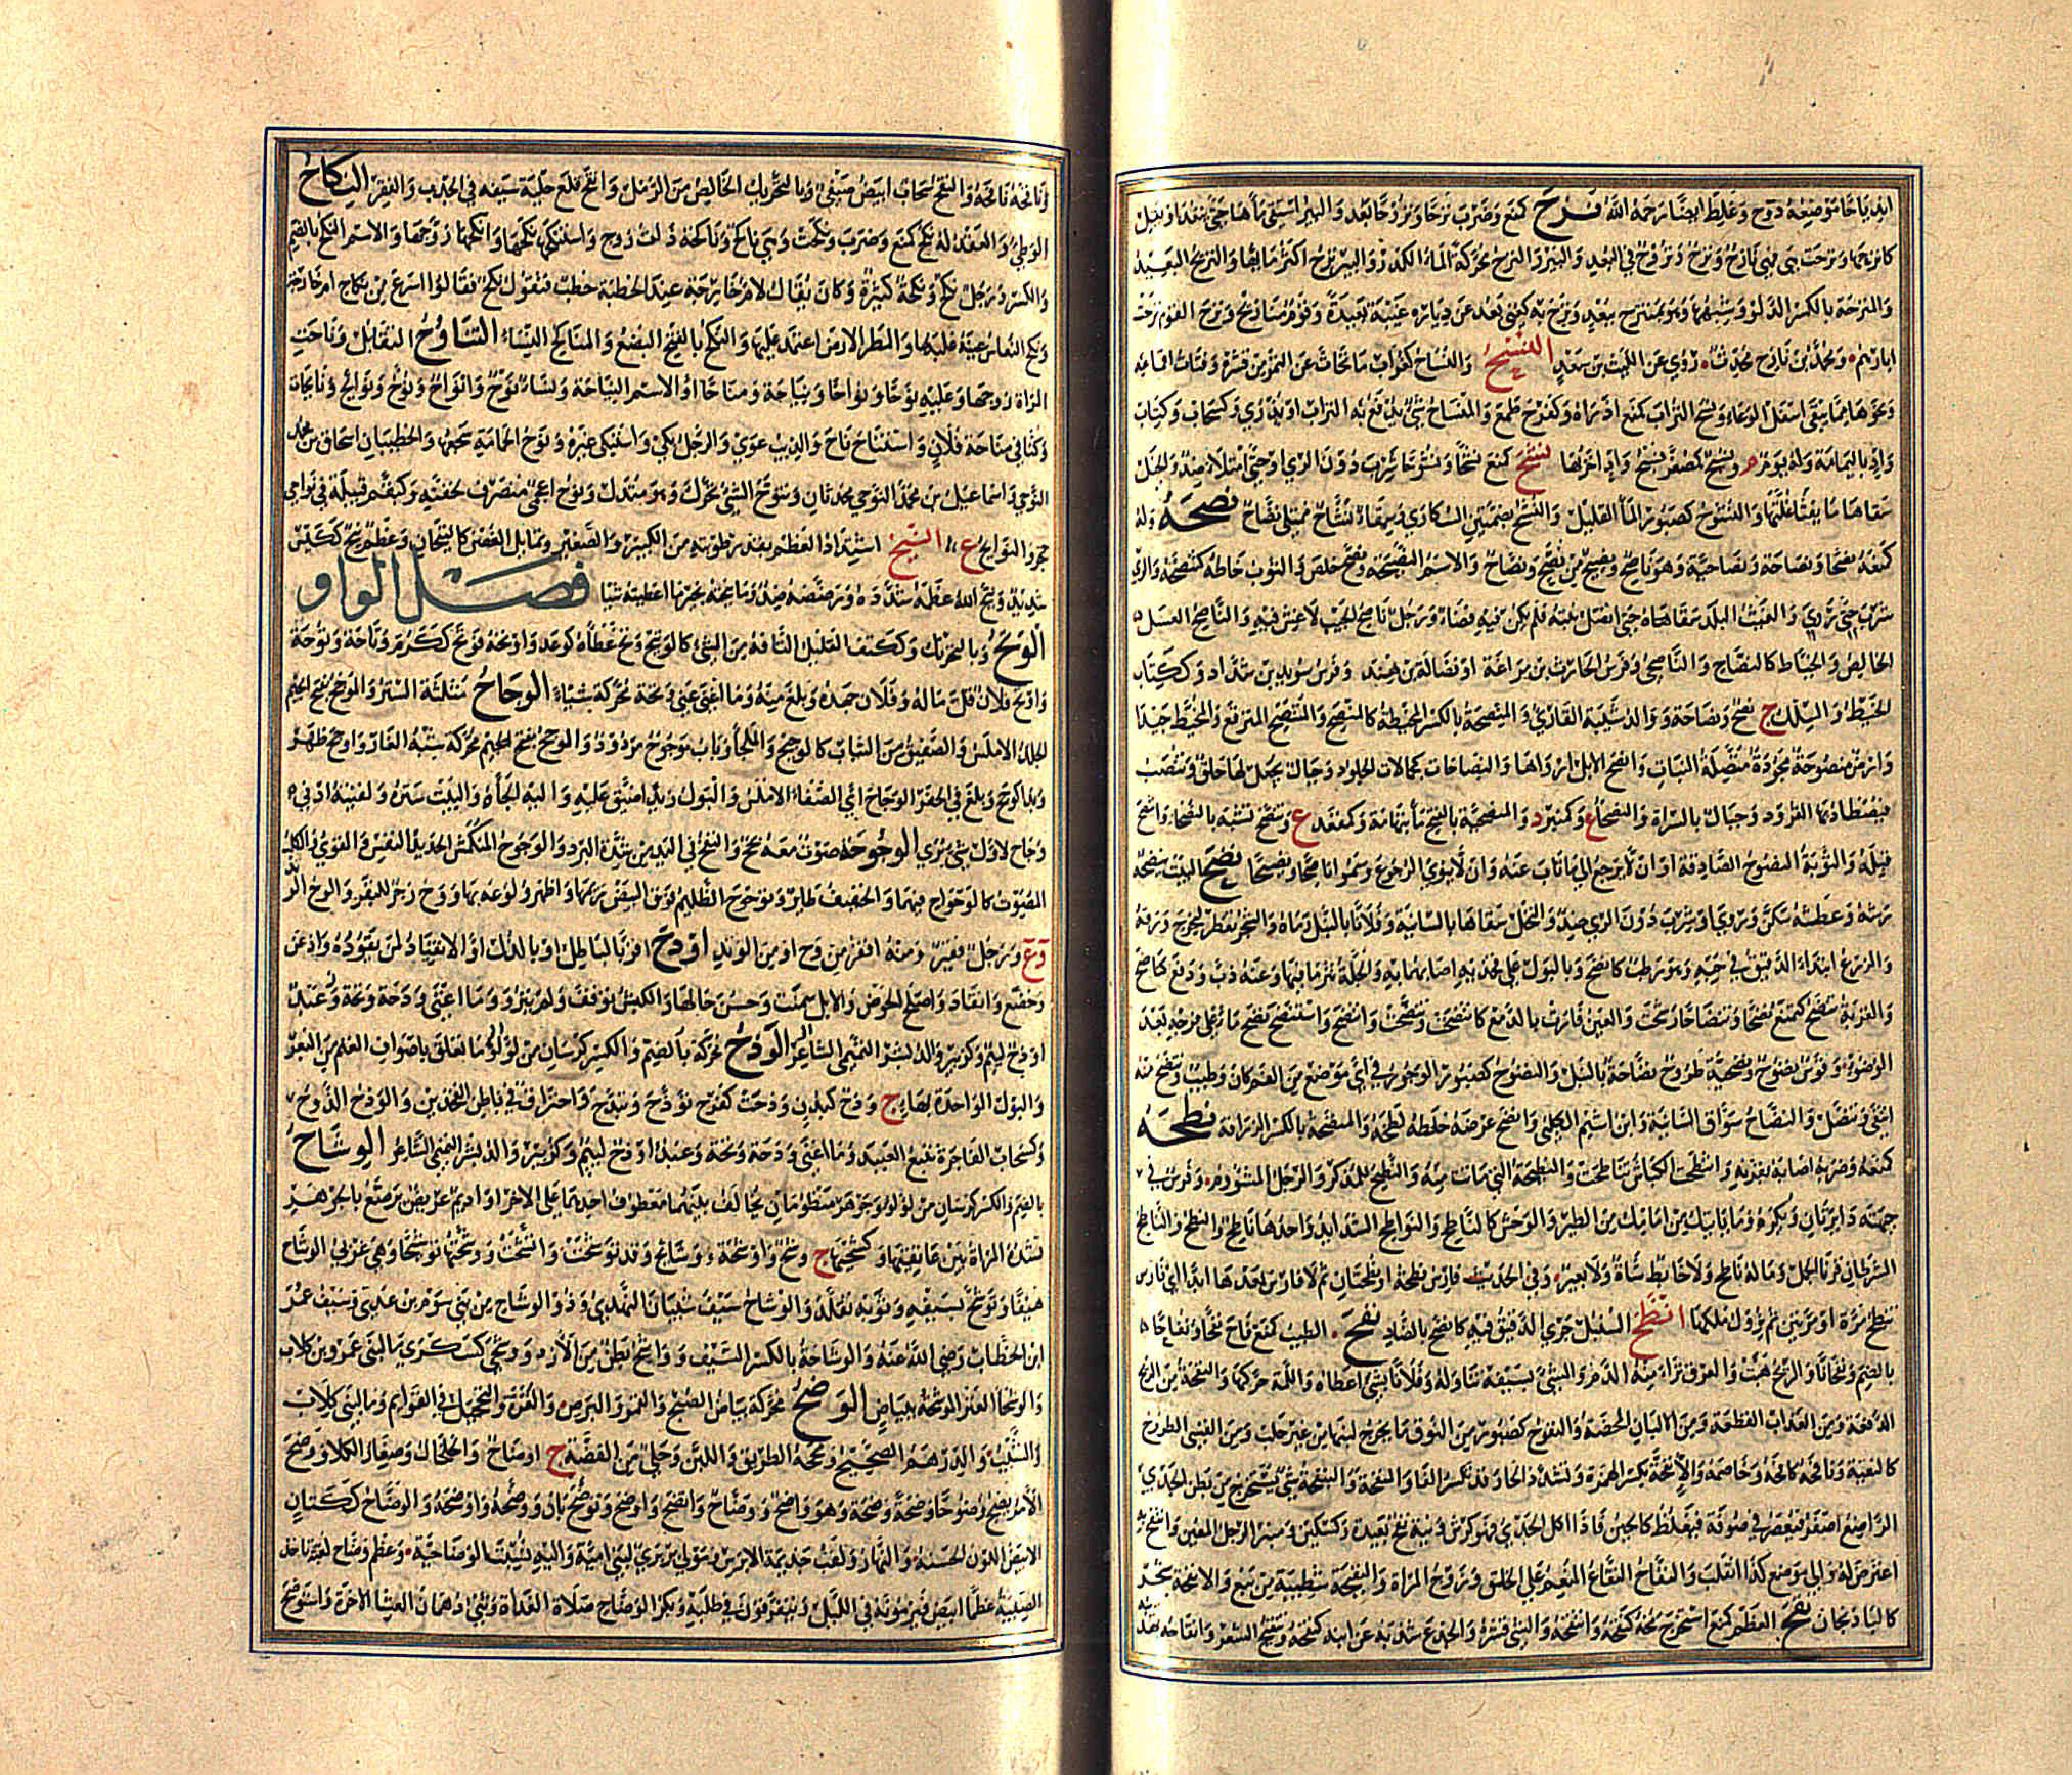 نزح كمنع وضرب نزحا ونزوحا بعد والبئر استقى ماءها حتى ينفد او يقل
كانزحها ونزحت هي فهي نازح ونزح ونزوح في البعد والبئر والنزح محركة الماء الكدر والبئر نزح اكثر مائها والنزيح البعيد
والمنزحة بالكسر الدلو وشبهها وهو بمنتزح ببعد ونزح به كعني بعد عن دياره غيبة بعيدة وقوم منازيح ونزح القوم نزحت
ابارهم ومحمد بن نازح محدث روى عن الليث بن سعد النسح والنساح كغراب ما تحات عن التمر من قشره وفتات اقماعه
ونحوهما مما يبقى اسفل الوعاء ونسح التراب كمنع اذراه وكفرح طمع والمنساح شيء يدفع به التراب او يذرى وكسحاب وكتاب
واد باليمامة وله يوم م ونسيح كمصغر نسح واد اخر بها نشح كمنع نشحا ونشوحا شرب دون الري او حتى امتلا ضد والخيل
سقاها ما يفثا غلتها والنشوح كصبور الماء القليل والنشح بضمتين السكارى وسقاء نشاح ممتلئ نضاح نصحه وله
كمنعه نصحا ونصاحة ونصاحية وهو ناصح ونصيح من نصح ونصاح والاسم النصيحة ونصح خلص والثوب خاطه كتنصحه والري
شرب حتى روي والغيث البلد سقاه حتى اتصل نبته فلم يكن فيه فضاء ورجل ناصح الجيب لا غش فيه والناصح العسل
الخالص والخياط كالنصاح والناصحي وفرس الحارث بن مراغة او فضالة بن هند وفرس سويد بن شداد وككتاب
الخيط والسلك ج نصح ونصاحة ووالد شيبة القارئ والمنصحة بالكسر المخيطة كالمنصح والمتنصح المترقع والمخيط جيدا
وارض منصوحة مجودة متصلة النبات وانصح الابل ارواها والنصاحات كجمالات الجلود وحبال يجعل لها حلق وتنصب
فيصطاد بها القرود وجبال بالسراة والنصحاء ع وكمنبر د والمنصحية بالفتح ماء بتهامة وكمقعد ع وتنصح تشبه بالنصحاء وانتصح
قبله والتوبة النصوح الصادقة او ان لا يرجع الى ما تاب عنه وان لا ينوي الرجوع وسموا ناصحا ونصيحا نضح البيت ينضحه
رشه وعطشه سكن وروي او شرب دون الري ضد والنخل سقاها بالسانية وفلانا بالنبل رماه والشجر تفطر ليخرج ورقه
والزرع ابتدا الدقيق في حبه وهو رطب كانضح وبالبول على فخذيه اصابهما به والجلة نثر ما فيها وعنه ذب ودفع كناضح
والقربة تنضح كمنع نضحا وتنضاحا رشحت والعين فارت بالدمع كانتضحت وتنضحت وانتضح واستنضح نضح ماء على فرجه بعد
الوضوء وقوس نضوح ونضحية طروح نضاحة بالنبل والنضوح كصبور الوجور في اي موضع من الفم كان وطيب وتنضح منه
انتفى وتنصل والنضاح سواق السانية وابن اشيم الكلبي وانضح عرضه لطخه والمنضحة بالكسر الزراقة نطحه
كمنعه وضربه اصابه بقرنه وانتطحت الكباش تناطحت والنطيحة التي ماتت منه والنطيح للمذكر والرجل المشؤوم وفرس في
جبهته دائرتان ويكره وما ياتيك من امامك من الطير والوحش كالناطح والنواطح الشدائد واحدها ناطح والنطح والناطح
الشرطان قرنا الحمل وماله ناطح ولا خابط شاة ولا بعير وفي الحديث فارس نطحة او نطحتان ثم لا فارس بعدها ابدا اي فارس
تنطح مرة او مرتين ثم يزول ملكها انظح السنبل جرى الدقيق فيه كانضح بالضاد نفح الطيب كمنع فاح نفحا ونفاحا
بالضم ونفحانا والريح هبت والعرق نزا منه الدم والشيء بسيفه تناوله وفلانا بشيء اعطاه واللمة حركها والنفحة من الريح
الدفعة ومن العذاب القطعة ومن الالبان المحضة والنفوح كصبور من النوق ما يخرج لبنها من غير حلب ومن القسي الطروح
كالنفيحة ونافحه كافحه وخاصمه والانفحة بكسر الهمزة وتشدد الحاء وقد تكسر الفاء والمنفحة والبنفحة شيء يستخرج من بطن الجدي
الراضع اصفر فيعصر في صوفة فيغلظ كالجبن فاذا اكل الجدي فهو كرش ونية نفح بعيدة وكسكين ومنبر الرجل المعن وانتفح به
اعترض له والى موضع كذا انقلب والنفاح النفاع المنعم على الخلق وزوج المراة والنفيحة شطيبة من نبع والانفحة شجر
كالباذنجان نقح العظم كمنع استخرج مخه كنقحه وانتقحه والشيء قشره والجذع شذبه عن ابنه كنقحه وتنقيح الشعر وانقاحه تهذيبه
وناقحه نافحه والنقح سحاب ابيض صيفي وبالتحريك الخالص من الرمل وانقح قلع حلية سيفه في الجدب والفقر النكاح
الوطء والعقد له نكح كمنع وضرب ونكحت وهي ناكح وناكحة ذات زوج واستنكحها نكحها وانكحها زوجها والاسم النكح بالضم
والكسر ورجل نكح ونكحة كثيره وكان يقال لام خارجة عند الخطبة خطب فتقول نكح فقالوا اسرع من نكاح ام خارجة
ونكح النعاس عينه غلبها والمطر الارض اعتمد عليها والنكح بالفتح البضع والمناكح النساء التناوح التقابل وناحت
المراة زوجها وعليه نوحا ونواحا ونياحة ومناحا او الاسم النياحة ونساء نوح وانواح ونوح ونوائح ونائحات
وكنا في مناحة فلان واستناح ناح والذيب عوى والرجل بكى واستبكى غيره ونوح الحمامة سجعها والخطيبان اسحاق بن محمد
النوحي واسماعيل بن محمد النوحي محدثان وتنوح الشيء تحرك وهو متدل ونوح اعجمي منصرف لخفته وكبقم قبيلة في نواحي
حجر والنوائح ع النيح اشتداد العظم بعد رطوبته من الكبير والصغير وتمايل الغصن كالنيحان وعظم نيح ككيس
شديد ونيح الله عظمه شدده ورضضه ضد وما نيحته بخير ما اعطيته شيا فصل الواو
الوتح وبالتحريك وككتف القليل التافه من الشيء كالوتيح وتح عطاه كوعد واوتحه فوتح ككرم وتاحة وتوحة
واوتح فلان قل ماله وفلانا جهده وبلغ منه وما اغنى عني وتحة محركة شيئا الوجاح مثلثة الستر والموجح بفتح الجيم
الجلد الاملس والصفيق من الثياب كالوجيح والملجا وباب موجوح مردود والوجح محركة شبه الغار واوجح ظهر
وبدا كوجح وبلغ في الحفر الوجاح اي الصفاء الاملس والبول زيدا ضيق عليه واليه الجاه والبيت ستره ولقيته ادنى
وجاح لاول شيء يرى الوحوحة صوت معه بحح والنفخ في اليد من شدة البرد والوحوح المنكمش الحديد النفس والقوي والكلب
المصوت كالوحواح فيهما والخفيف طائر وتوحوح الظليم فوق البيض رئمها واظهر ولوعه بها ووح زجر للبقر والوح الوتد
وع ورجل فقير ومنه افقر من وح او من الوتد اودح اقر بالباطل او بالذل او الانقياد لمن يقوده واذعن
وخضع وانقاد واصلح الحوض والابل سمنت وحسن حالها والكبش توقف ولم ينز وما اغنى ودحة وتحة وعبد
اودح لئيم وكزبير والد بشر التميمي الشاعر الوذح محركة ما تعلق باصواف الغنم من البعر
والبول الواحدة بهاء ج وذح كبدن وذحت كفرح توذح وتيذح واحتراق في باطن الفخذين والوذح الذوح
وكسحاب الفاجرة تتبع العبيد وما اغنى وذحة وتحة وعبد اوذح لئيم وكزبير والد بشر التميمي الشاعر الوشاح
بالضم والكسر كرسان من لؤلؤ وجوهر منظومان يخالف بينهما معطوف احدهما على الاخر واديم عريض يرصع بالجوهر
تشده المراة بين عاتقيها وكشحيها ج وشح واوشحة ووشائح وقد توشحت واتشحت ووشحتها توشيحا وهي غرثى الوشاح
هيفاء وتوشح بسيفه وثوبه تقلد والوشاح سيف شيبان النهدي وذو الوشاح من بني سوم بن عدي وسيف عمر
ابن الخطاب رضي الله عنه والوشاحة بالكسر السيف وواشح بطن من الازد ووشحى كسكرى ماء لبني عمرو بن كلاب
والوشحاء العنز الموشحة ببياض الوضح محركة بياض الصبح والقمر والبرص والغرة والتحجيل في القوائم وماء لبني كلاب
والشيب والدرهم الصحيح ومحجة الطريق واللبن وحلي من الفضة ج اوضاح والخلخال وصغار الكلا وضح
الامر يضح وضوحا وضحة وضحة وهو واضح ووضاح واتضح واوضح وتوضح بان ووضحه واوضحه والوضاح ككتان
الابيض اللون الحسنه والنهار ولقب جذيمة الابرش ومولى بربري لبني امية واليه نسبت الوضاحية وعظم وضاح لعبة تاخذ
الصبية عظما ابيض فيرمونه في الليل ويتفرقون في طلبه وبكر الوضاح صلاة الغداة وثني دهمان العشاء الاخرة واستوضح